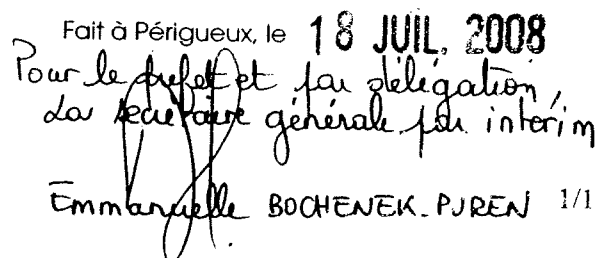 Fait à Périgueux, le 18 JUIL. 2008
Pour le préfet et par délégation,
La secrétaire générale par intérim
Emmanuelle BOCHENEK-PUREN 1/1